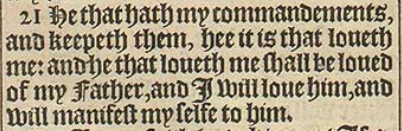 21 He that hath my commandements,
and keepeth them, hee it is that loueth
me: and he that loueth me shall be loued
of my Father, and I will loue him, and
will manifest my selfe to him.